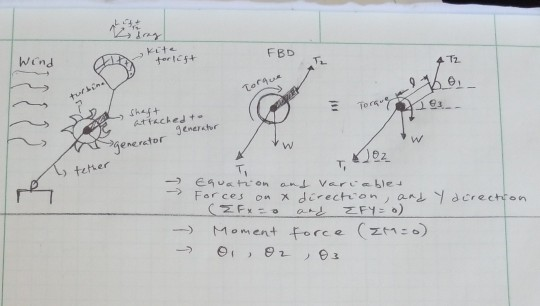 Lift
drag
Kite
for lift
Wind
turbine
shaft
attached to
generator
generator
tether
FBD
T2
Torque
W
T1
≡
T2
l
θ1
θ3
Torque
W
T1
θ2
→ Equation and Variables
→ Forces on X direction, and Y direction
(ΣFx=0 and ΣFY=0)
→ Moment force (ΣM=0)
→ θ1, θ2, θ3